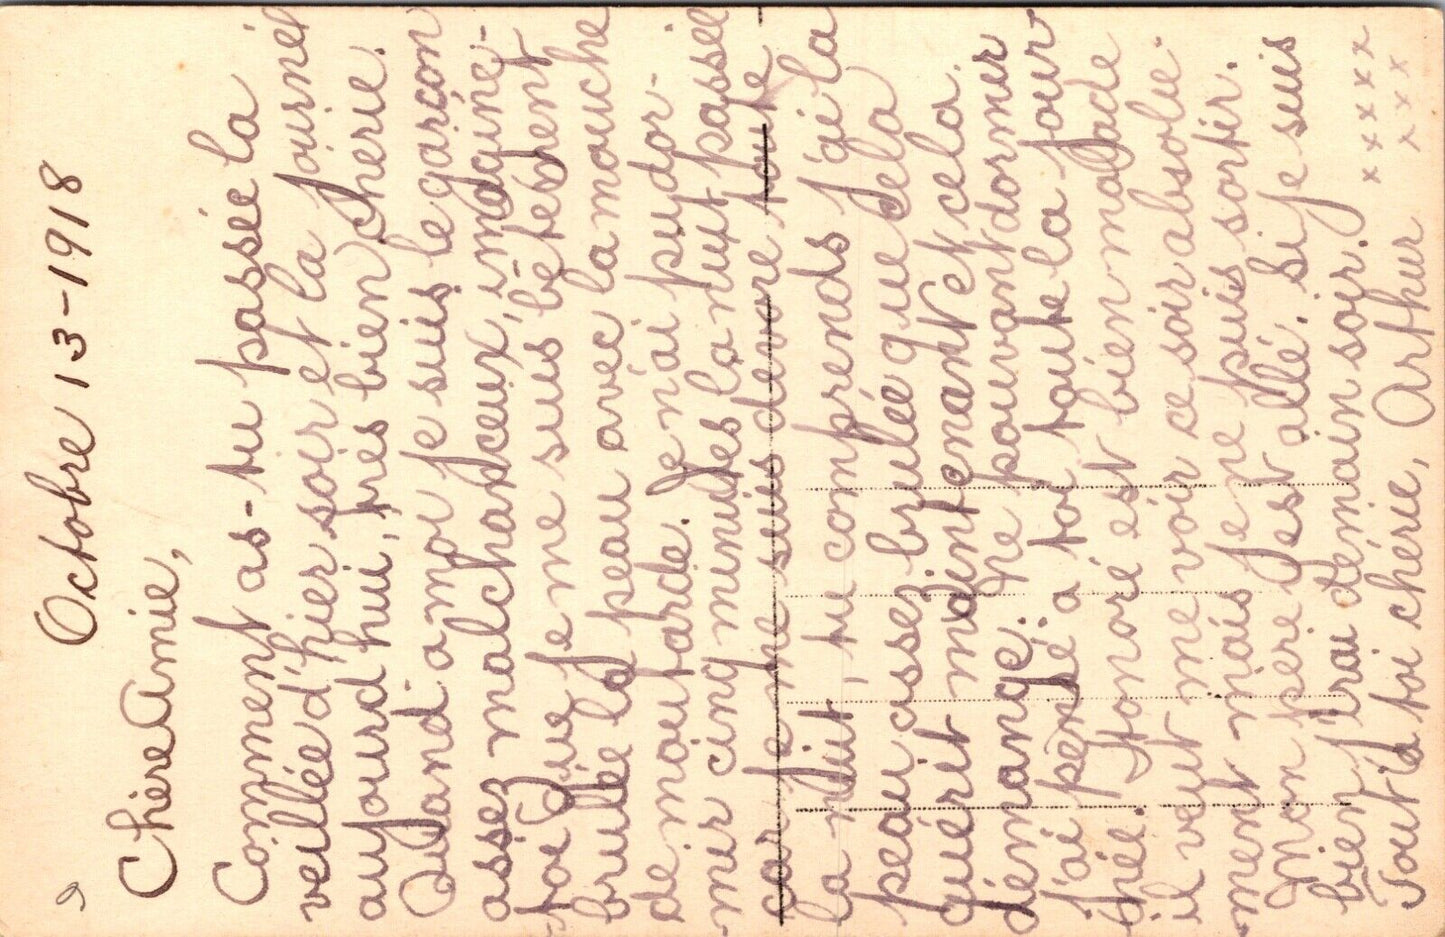 Octobre 13-1918
Chère Amie,
Comment as-tu passée la
veillée d'hier soir et la journée
aujourd'hui, très bien chérie.
Quand a moi je suis le garçon
assez malchanceux, imagine-
toi que je me suis bêtement
brullée la peau avec la mouche
de moutarde. Je n'ai pu dor-
mir cinq minutes la nuit passée
car je me suis devore toute
la nuit, tu comprends j'ai la
peau assez brulée que cela
guérit maintenant et cela
démange. Ne pouvant dormir
j'ai pensé a toi toute la jour
née. Honoré est bien malade
il veut me voir ce soir absolu-
ment mais je ne puis sortir.
Mon père y est allé. Si je suis
bien j'irai demain soir. xxxxx
Tout à toi chérie, Arthur xxx